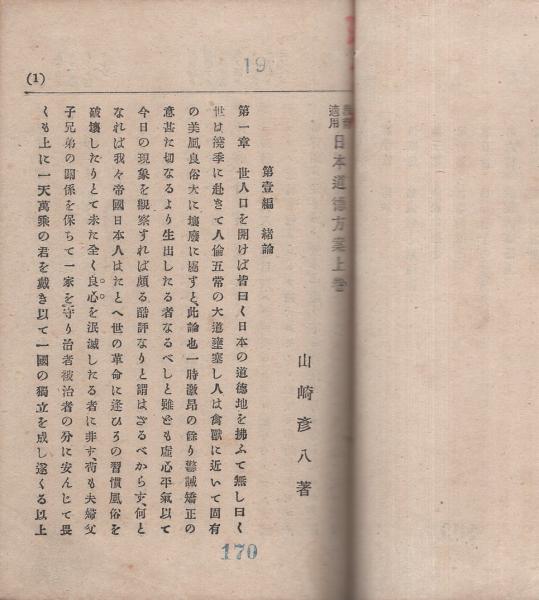 19
(1)
適用
日本道德方案上卷
山崎彦八著
第壹編 緒論
第一章 世人口を開けば皆曰く日本の道德地を拂ふて無し曰く
世は澆季に赴きて人倫五常の大道壅塞し人は禽獸に近いて固有
の美風良俗大に壞廢に屬すと、此論也一時激昂の餘り警誡矯正の
意甚た切なるより生出したる者なるべしと雖ども虛心平氣以て
今日の現象を觀察すれば頗る酷評なりと謂はざるべからす、何と
なれば我々帝國日本人はたとへ世の革命に逢ひろの習慣風俗を
破壞したりとて未た全く良心を泯滅したる者に非す、苟も夫婦父
子兄弟の關係を保ちて一家を守り治者被治者の分に安んじて畏
くも上に一天萬乘の君を戴き以て一國の獨立を成し遂くる以上
170